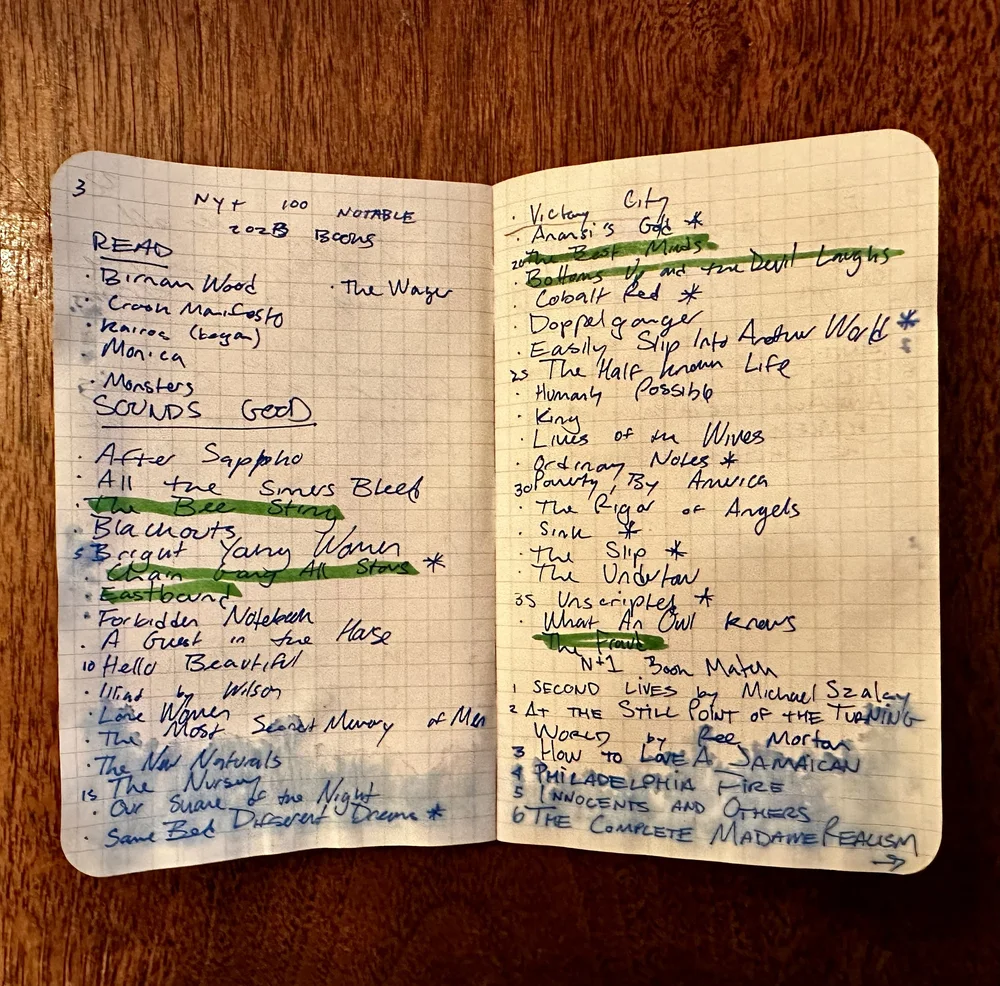 3
NYT 100 NOTABLE
2023 BOOKS
READ
· Birnam Wood
· The Wager
· Crook Manifesto
· Kairos (began)
· Monica
· Monsters
SOUNDS GOOD
· After Sappho
· All the Sinners Bleed
· The Bee Sting
· Blackouts
5 Bright Young Women
· Chain Gang All Stars *
· Eastbound
· Forbidden Notebook
· A Guest in the House
10 Hello Beautiful
· Iliad by Wilson
· Lone Women
· The Most Secret Memory of Men
· The New Naturals
15 The Nursery
· Our Share of the Night
· Same Bed Different Dreams *
· Victory City
· Anansi's Gold *
20 The Best Minds
· Bottoms Up and the Devil Laughs
· Cobalt Red *
· Doppelganger
· Easily Slip Into Another World *
25 The Half Known Life
· Humanly Possible
· King
· Lives of the Wives
· Ordinary Notes *
30 Poverty, By America
· The Rigor of Angels
· Sink *
· The Slip *
· The Undertow
35 Unscripted *
· What An Owl Knows
The Fraud
N+1 Book Match
1 SECOND LIVES by Michael Szalay
2 AT THE STILL POINT OF THE TURNING
WORLD by Ree Morton
3 HOW TO LOVE A JAMAICAN
4 PHILADELPHIA FIRE
5 INNOCENTS AND OTHERS
6 THE COMPLETE MADAME REALISM
→